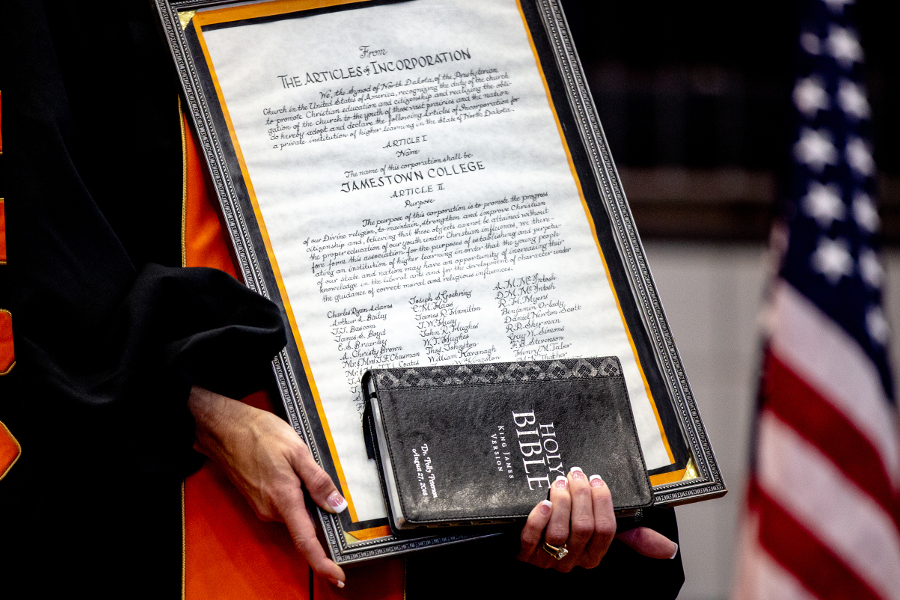 From
THE ARTICLES of INCORPORATION
We, the synod of North Dakota, of the Presbyterian
Church in the United States of America, recognizing the duty of the church
to promote Christian education and citizenship and realizing the obli-
gation of the church to the youth of these vast prairies and the nation
do hereby adopt and declare the following Articles of Incorporation for
a private institution of higher learning in the State of North Dakota.
ARTICLE I
Name
The name of this corporation shall be
JAMESTOWN COLLEGE
ARTICLE II
Purpose
The purpose of this corporation is to promote the progress
of our Divine religion, to maintain, strengthen and improve Christian
citizenship and, believing that these objects cannot be attained without
the proper education of our youth under Christian influences, we there-
fore form this association for the purposes of establishing and perpetu-
ating an institution of higher learning in order that the young people
of our state and nation may have an opportunity of increasing their
knowledge in the liberal arts and for the development of character under
the guidance of correct moral and religious influences.
Charles Ryan Adams
Arthur L. Bailey
J.J. Bascom
James E. Boyd
C.B.
A. Christy Brown
Joseph J. Goehring
C.M. Haas
James K. Hamilton
T.W. Huey
John S. Hughes
W.T. Hughes
Thos. Johnston
William Kavanagh
A.M. McIntosh
D.N. McIntosh
R.H. Myers
Benjamin
Daniel Newton Scott
R.D. Sherman
Guy W. Simons
F.B. Stevenson
Henry M. Taber
HOLY
BIBLE
KING JAMES
VERSION
Dr. Polly
August 27, 2018